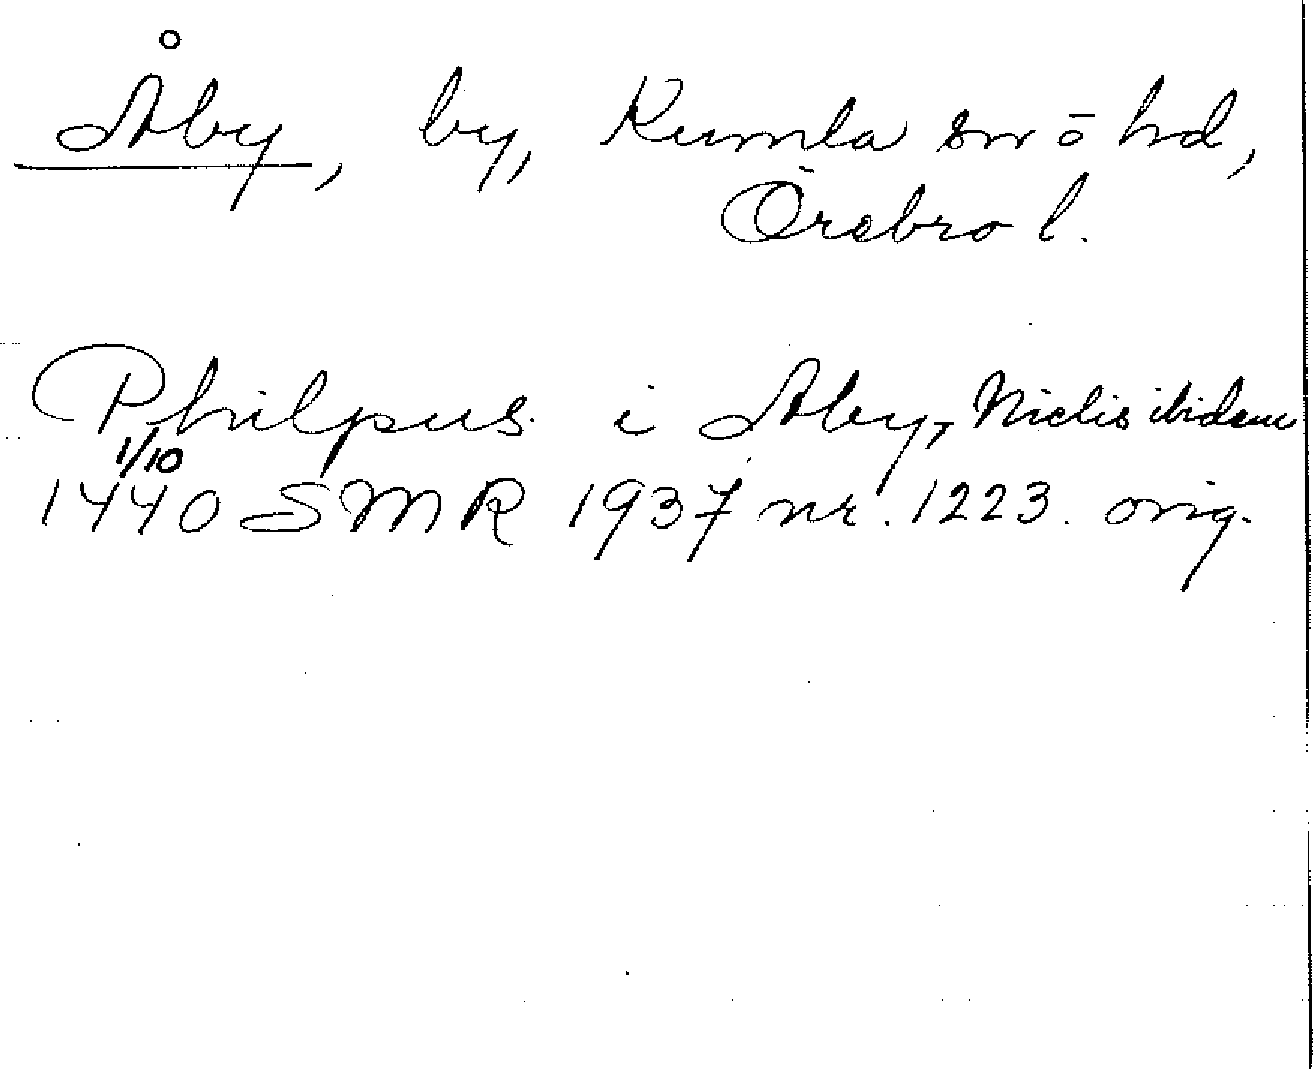 Åby, by, Kumla sn ō hd,
Örebro l.
Philpus i Aby, Niclis ibidem
1/10
1440 SMR 1937 nr. 1223. orig.